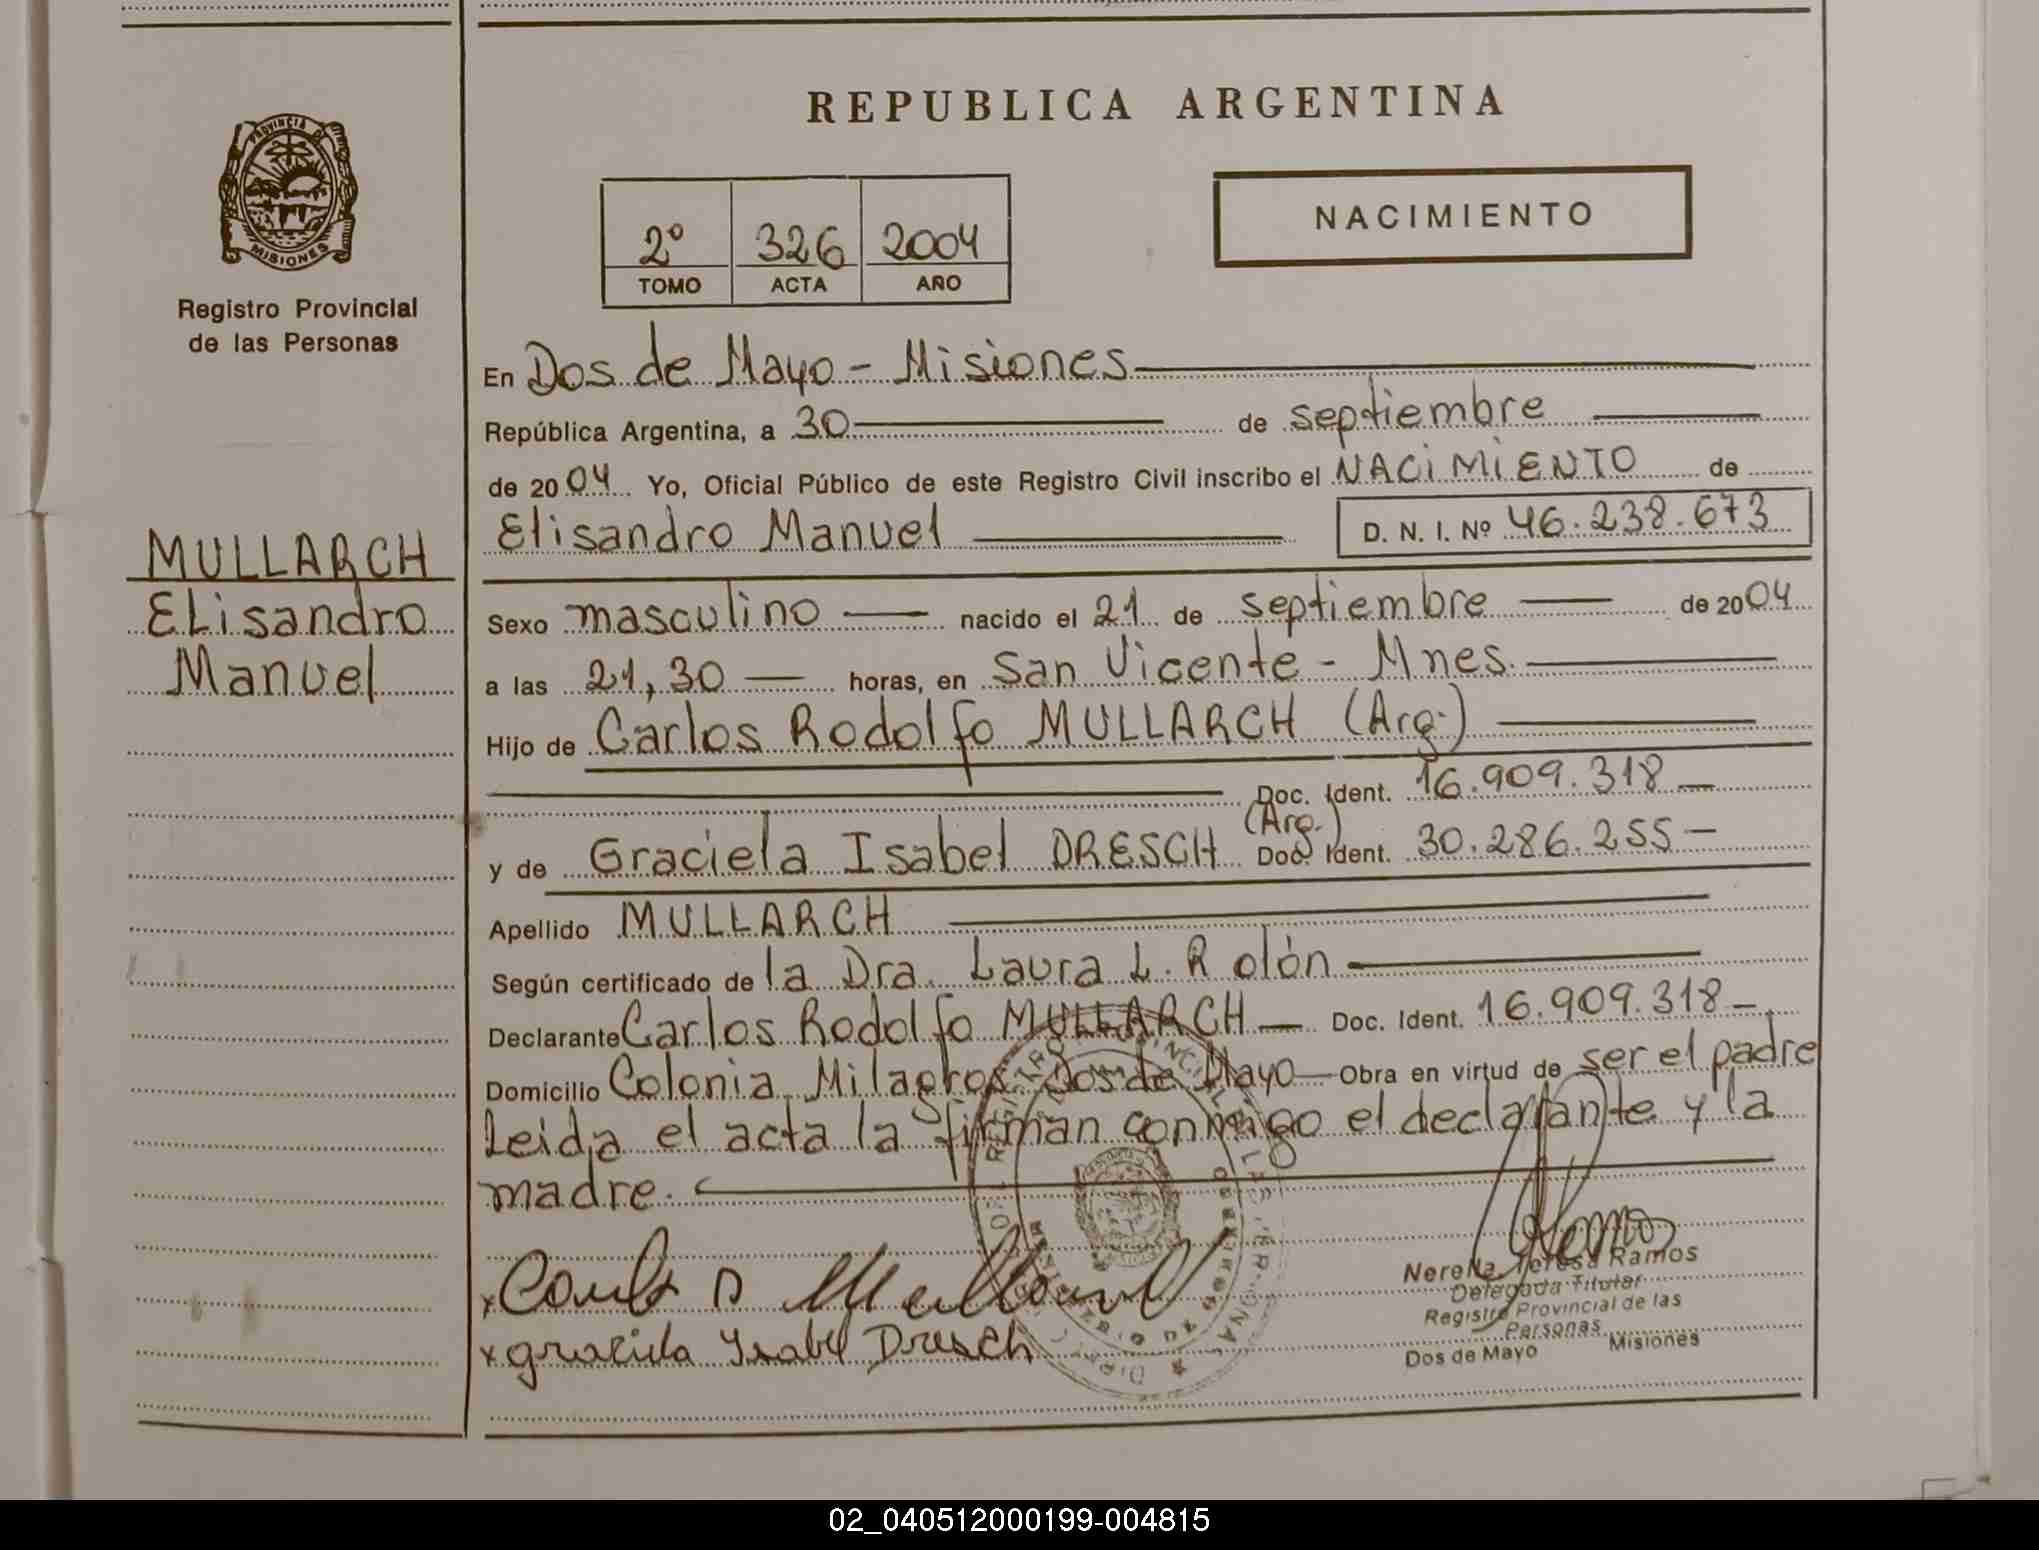 REPUBLICA ARGENTINA
PROVINCIA DE
MISIONES
Registro Provincial
de las Personas
2º 326 2004
TOMO ACTA AÑO
NACIMIENTO
En Dos de Mayo - Misiones
República Argentina, a 30 de septiembre
de 2004 Yo, Oficial Público de este Registro Civil inscribo el NACIMIENTO de
Elisandro Manuel D. N. I. Nº 46.238.673
MULLARCH
Elisandro
Manuel
Sexo masculino nacido el 21 de septiembre de 2004
a las 21,30 horas, en San Vicente - Mnes.
Hijo de Carlos Rodolfo MULLARCH (Arg.)
Doc. Ident. 16.909.318
y de Graciela Isabel DRESCH (Arg.) Doc. Ident. 30.286.255
Apellido MULLARCH
Según certificado de la Dra. Laura L. Rolón
Declarante Carlos Rodolfo MULLARCH Doc. Ident. 16.909.318
Domicilio Colonia Milagros Dos de Mayo Obra en virtud de ser el padre
Leida el acta la firman conmigo el declarante y la
madre.
x graciela Ysabel Dresch
Nerella Teresa Ramos
Delegada Titular
Registro Provincial de las
Personas
Dos de Mayo Misiones
02_040512000199-004815